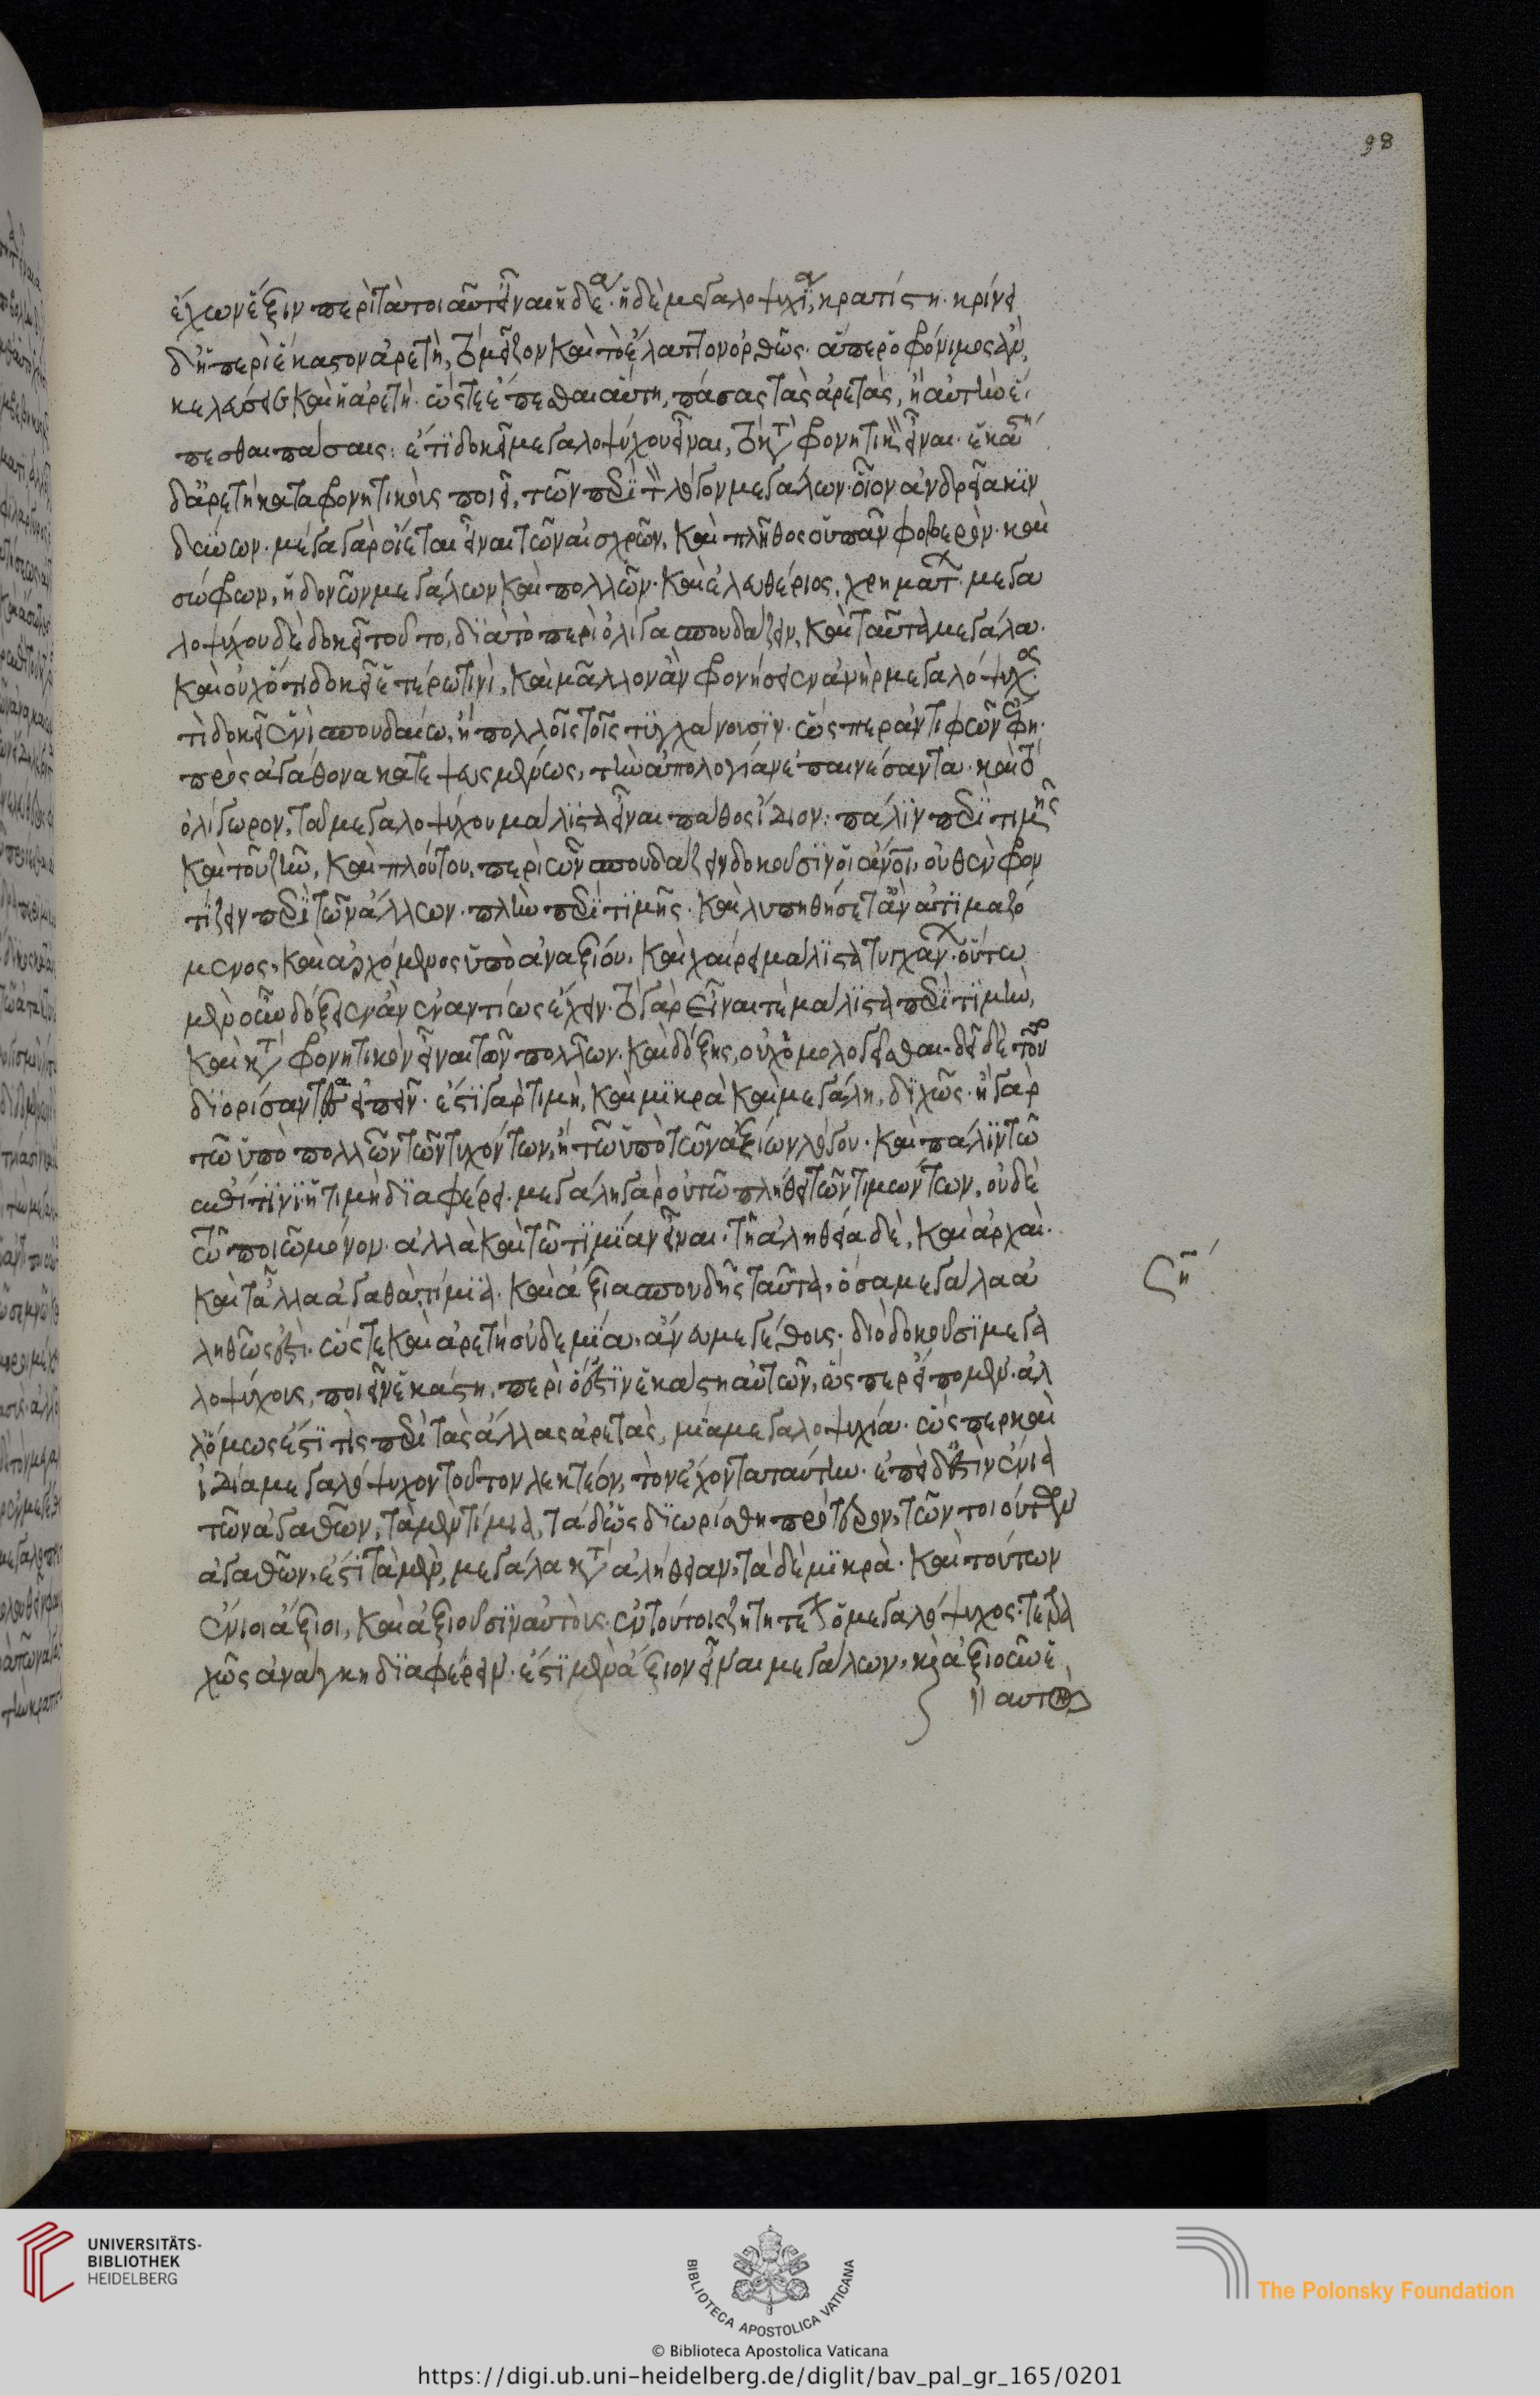 ἔχων ἕξιν περὶ τὰ τοιαῦτ' εἶναι ἡδέα. ἡ δὲ μεγαλοψυχία, κρατίστη. κρίνει
δ' ἡ περὶ ἕκαστον ἀρετὴ, τὸ μεῖζον καὶ τὸ ἔλαττον ὀρθῶς. ἅπερ ὁ φρόνιμος ἂν,
κελεύσει καὶ ἡ ἀρετή. ὥστε ἕπεσθαι αὐτῆ, πάσας τὰς ἀρετὰς, ἢ αὐτὴν ἕ
πεσθαι πάσαις: ἔτι δοκεῖ μεγαλοψύχου εἶναι, τὸ καταφρονητικὸν εἶναι. ἑκάστη
δ' ἀρετὴ καταφρονητικοὺς ποιεῖ, τῶν παρὰ τὸν λόγον μεγάλων. οἷον ἀνδρεία κιν
δύνων. μέγα γὰρ οἴεται εἶναι τῶν αἰσχρῶν, καὶ πλῆθος οὐ πᾶν φοβερόν. καὶ
σώφρων, ἡδονῶν μεγάλων καὶ πολλῶν. καὶ ἐλευθέριος, χρημάτων. μεγα
λοψύχου δὲ δοκεῖ τοῦτο, διὰ τὸ περὶ ὀλίγα σπουδάζειν, καὶ ταῦτα μεγάλα.
καὶ οὐχ ὅτι δοκεῖ ἑτέρω τινὶ, καὶ μᾶλλον ἂν φρονήσειεν ἀνὴρ μεγαλόψυχος.
τί δοκεῖ ἑνὶ σπουδαίω, ἢ πολλοῖς τοῖς τυγχάνουσιν. ὥσπερ ἀντιφῶν ἔφη.
πρὸς ἀγάθωνα κατεψευσμένως, τὴν ἀπολογίαν ἐπαινέσαντα. καὶ τὸ
ὀλίγωρον, τοῦ μεγαλοψύχου μάλιστα εἶναι πάθος ἴδιον: πάλιν περὶ τιμῆς
καὶ τοῦ ζῆν, καὶ πλούτου, περὶ ὧν σπουδάζειν δοκοῦσιν οἱ ἄνθρωποι, οὐθὲν φρον
τίζειν περὶ τῶν ἄλλων. πλὴν περὶ τιμῆς. καὶ λυπηθήσεται ἂν ἀτιμαζό
μενος, καὶ ἀρχόμενος ὑπὸ ἀναξίου, καὶ χαίρει μάλιστα τυγχάνων. οὕτω
μὲν οὖν δόξειεν ἂν ἐναντίως ἔχειν. τὸ γὰρ εἶναί τε μάλιστα περὶ τιμὴν,
καὶ καταφρονητικὸν εἶναι τῶν πολλῶν. καὶ δόξης, οὐχ ὁμολογεῖσθαι. δεῖ δὲ τοῦτο
διορίσαντας εἰπεῖν. ἔστι γὰρ τιμὴ, καὶ μικρὰ καὶ μεγάλη, διχῶς. ἢ γὰρ
τῶ ὑπὸ πολλῶν τῶν τυχόντων, ἢ τῶ ὑπὸ τῶν ἀξίων λόγου. καὶ πάλιν τῶ
ἐπὶ τίνι ἡ τιμὴ διαφέρει. μεγάλη γὰρ οὐ τῶ πλήθει τῶν τιμώντων, οὐδὲ
τῶ ποιῶ μόνον. ἀλλὰ καὶ τῶ τιμίαν εἶναι. τῆ ἀληθεία δὲ, καὶ ἀρχαὶ.
καὶ τἆλλα ἀγαθὰ τίμια. καὶ ἄξια σπουδῆς ταῦτα, ὅσα μεγάλα ἀ
ληθῶς ἐστι. ὥστε καὶ ἀρετὴ οὐδεμία. ἄνευ μεγέθους. διὸ δοκοῦσι μεγα
λοψύχους, ποιεῖν ἑκάστη, περὶ ὅ ἐστιν ἑκάστη αὐτῶν, ὥσπερ εἴπομεν. ἀλ
λ' ὅμως ἔστι τὶς παρὰ τὰς ἄλλας ἀρετὰς, μία μεγαλοψυχία. ὥσπερ καὶ
ἰδία μεγαλόψυχον τοῦτον λεκτέον, τὸν ἔχοντα ταύτην. ἐπεὶ δ' ἐστὶν ἔνια
τῶν ἀγαθῶν, τὰ μὲν τίμια, τὰ δ' ὡς διωρίσθη πρότερον, τῶν τοιούτων
ἀγαθῶν, ἔστι τὰ μὲν, μεγάλα κατ' ἀλήθειαν, τὰ δὲ μικρὰ. καὶ τούτων
ἔνιοι ἄξιοι, καὶ ἀξιοῦσιν αὑτοὺς. ἐν τούτοις ζητητέος ὁ μεγαλόψυχος. τετρα
χῶς ἀνάγκη διαφέρειν. ἔστι μὲν ἄξιον εἶναι μεγάλων, καὶ ἀξιοῦν ἑ
αυτὸν